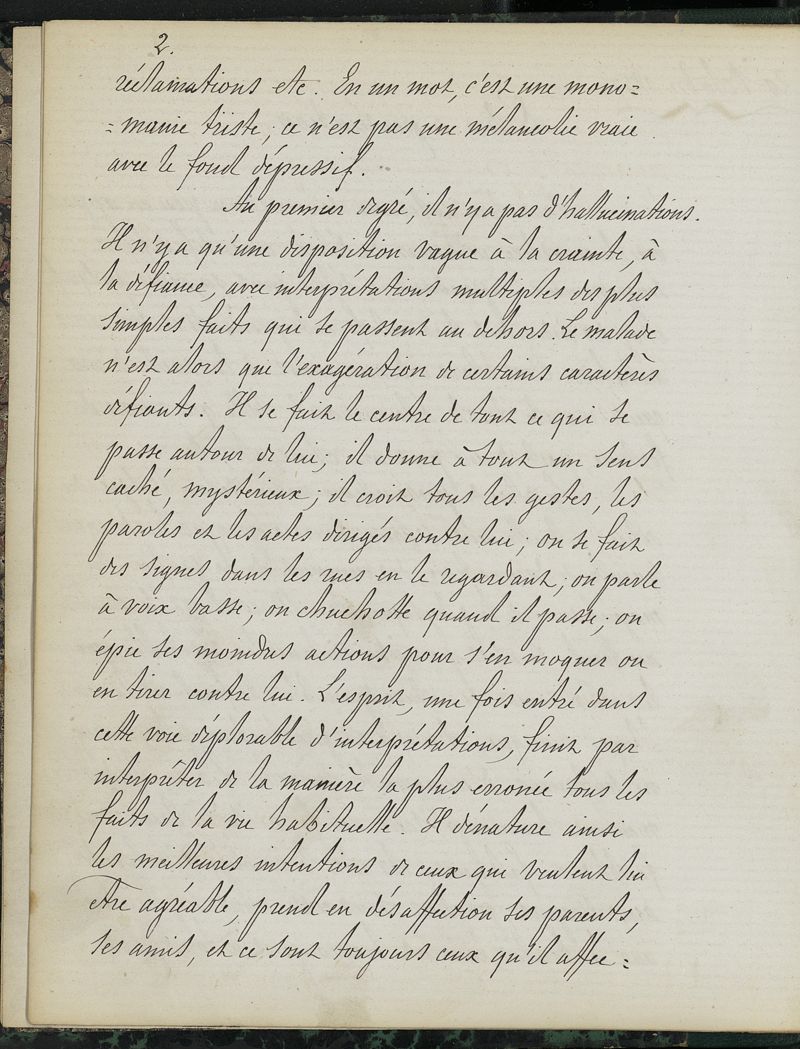 2.
réclamations etc. En un mot, c'est une mono=
=manie triste; ce n'est pas une mélancolie vraie
avec le fond dépressif.
Au premier degré, il n'y a pas d'hallucinations.
Il n'y a qu'une disposition vague à la crainte, à
la défiance, avec interprétations multiples des plus
simples faits qui se passent au dehors. Le malade
n'est alors que l'exagération de certains caractères
défiants. Il se fait le centre de tout ce qui se
passe autour de lui; il donne à tout un sens
caché, mystérieux; il croit tous les gestes, les
paroles et les actes dirigés contre lui; on se fait
des signes dans les rues en le regardant; on parle
à voix basse; on chuchotte quand il passe; on
épie ses moindres actions pour s'en moquer ou
en tirer contre lui. L'esprit, une fois entré dans
cette voie déplorable d'interprétations, finit par
interpréter de la manière la plus erronée tous les
faits de la vie habituelle. Il dénature ainsi
les meilleures intentions de ceux qui veulent lui
être agréable, prend en désaffection ses parents,
ses amis, et ce sont toujours ceux qu'il affec=